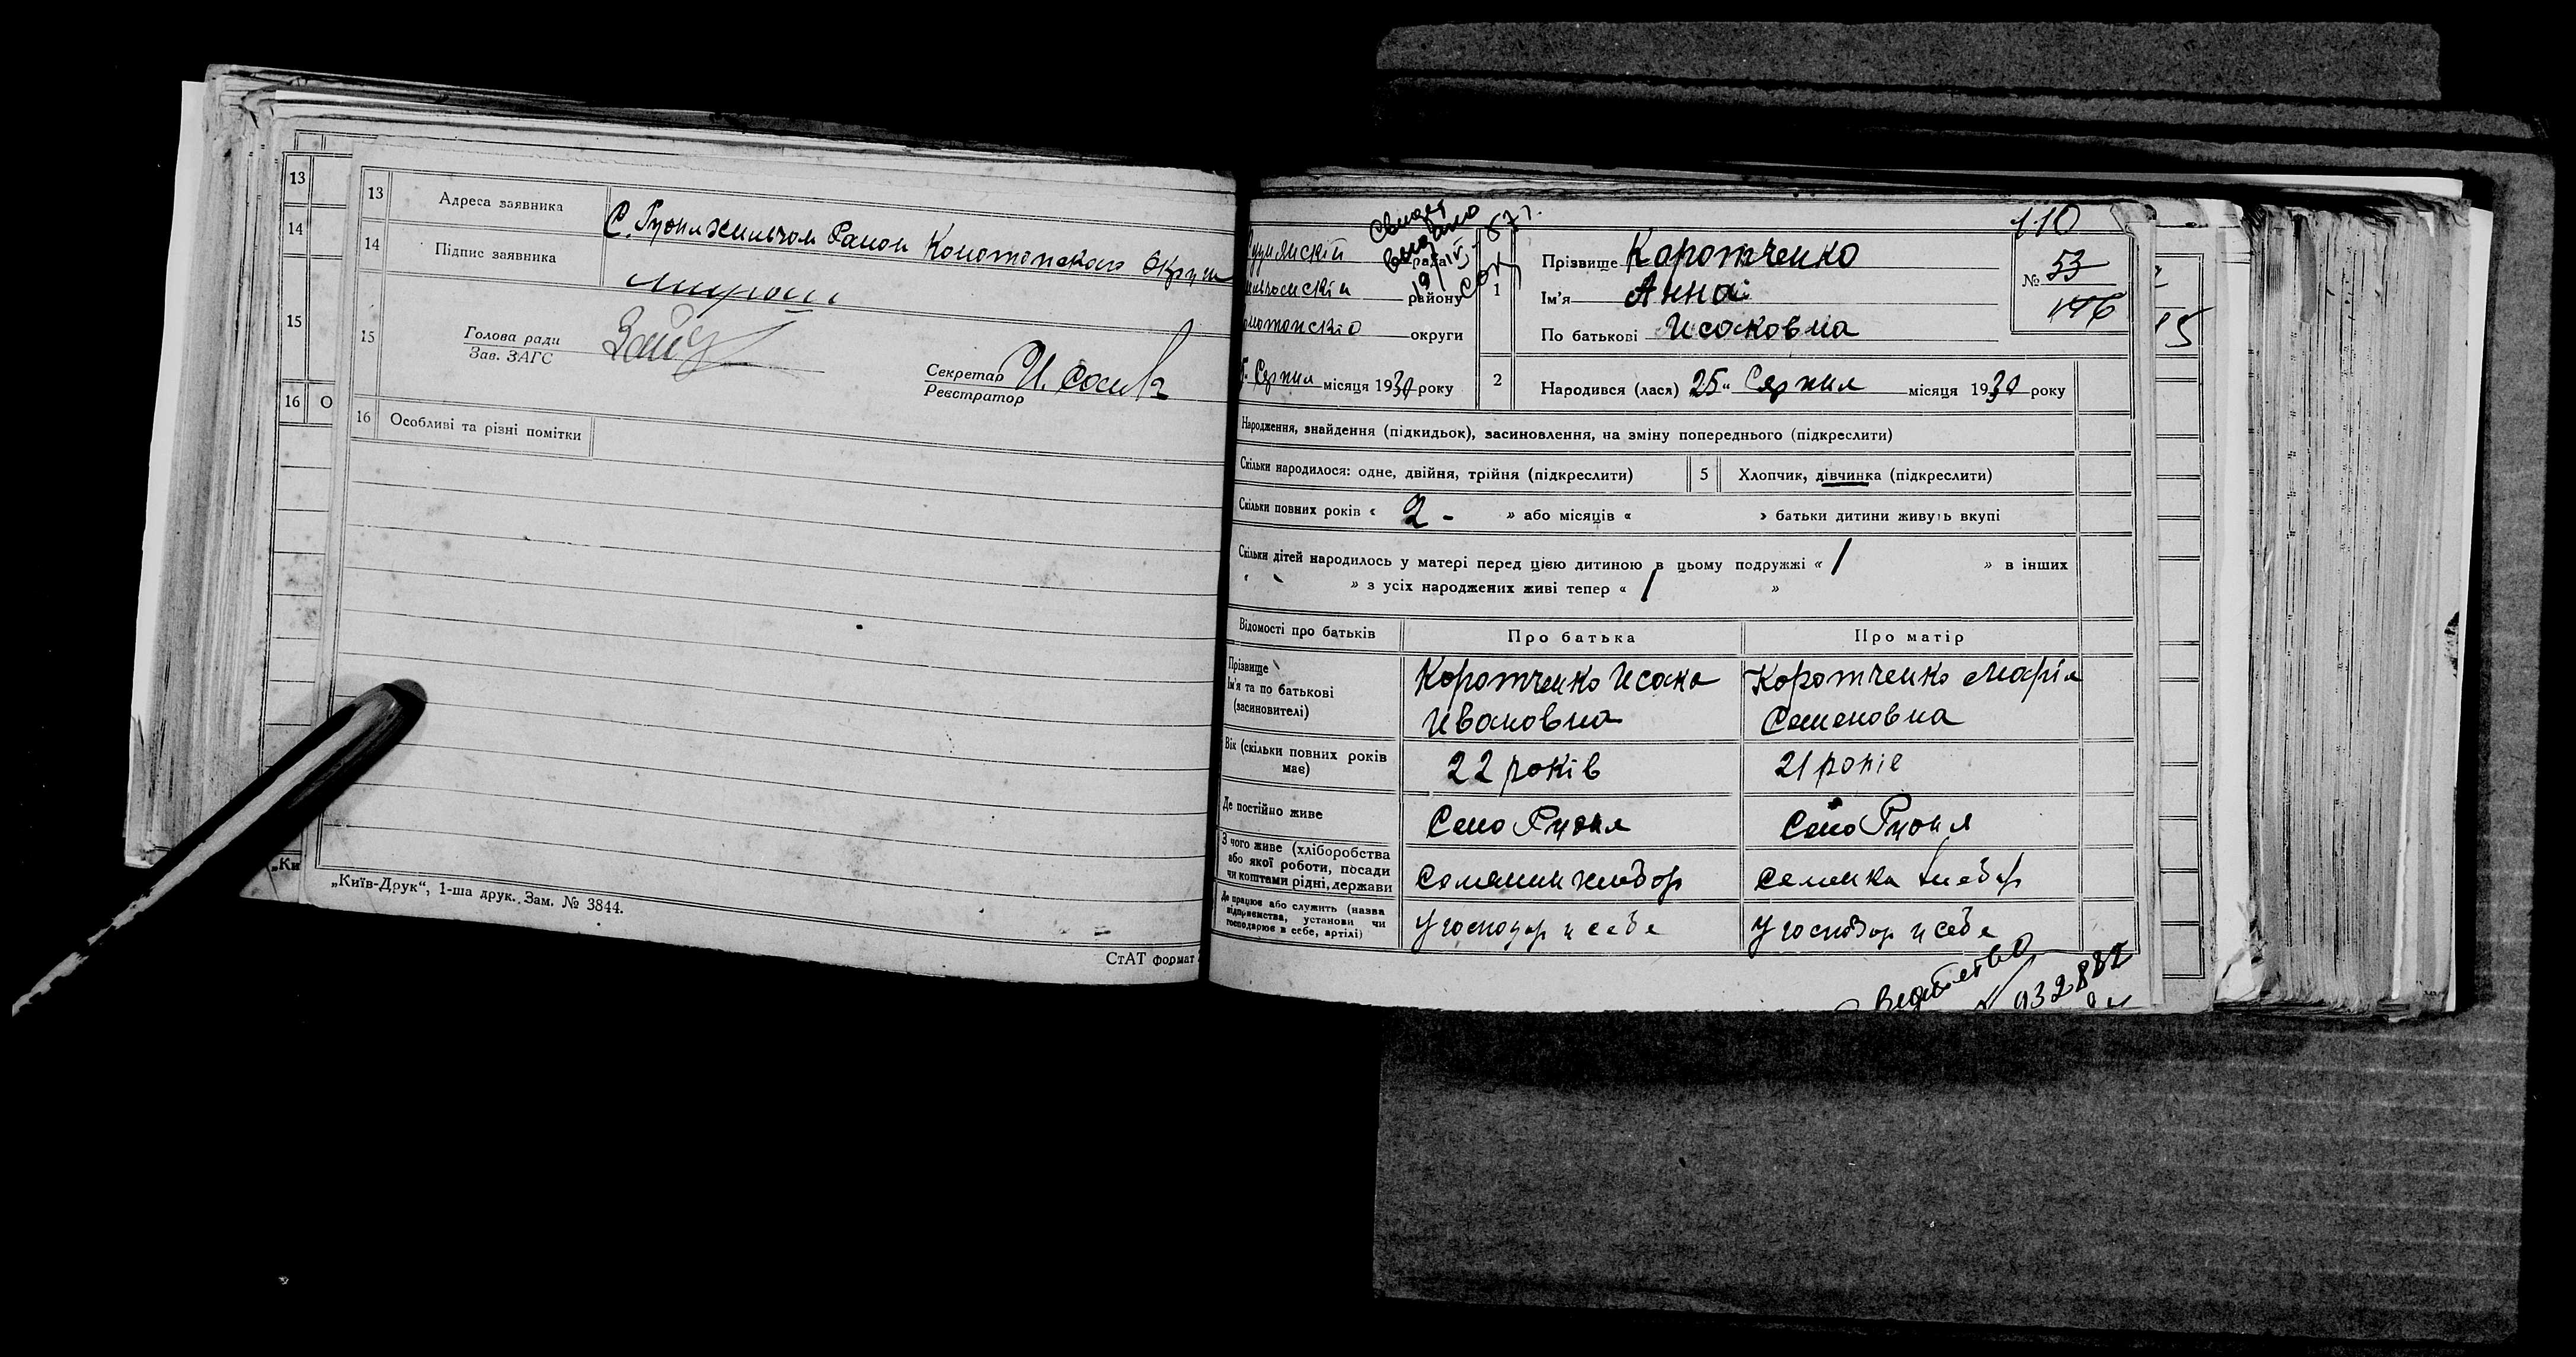 13
14
15
16 О
„Ки
13 Адреса заявника
С. Рудня Хильчом Район Конотопского Округи
14 Підпис заявника
15 Голова ради
Зав. ЗАГС
Секретар
Реєстратор
16 Особливі та різні помітки
„Київ-Друк“, 1-ша друк. Зам. № 3844.
СтАТ формат
Свидет
выдано
19/IV-57г.
рада
району
округи
Серпня місяця 1930 року
110
1 Прізвище Коротченко
Ім'я Анна
По батькові Исаковна
№ 53
146
2 Народився (лася) 25" Серпня місяця 1930 року
Народження, знайдення (підкидьок), засиновлення, на зміну попереднього (підкреслити)
Скільки народилося: одне, двійня, трійня (підкреслити) 5 Хлопчик, дівчинка (підкреслити)
Скільки повних років « 2 - » або місяців « » батьки дитини живуть вкупі
Скільки дітей народилось у матері перед цією дитиною в цьому подружжі « 1 » в інших
« » з усіх народжених живі тепер « 1 »
Відомості про батьків Про батька Про матір
Прізвище
Ім'я та по батькові
(засиновителі)
Коротченко Исака
Ивановна
Коротченко Марія
Семеновна
Вік (скільки повних років
має)
22 років
21 років
Де постійно живе
Село Рудня
Село Рудня
З чого живе (хліборобства
або якої роботи, посади
чи коштами рідні, держави
Де працює або служить (назва
підприємства, установи чи
господарює в себе, артілі)
У господар и себе
У господар и себе
15